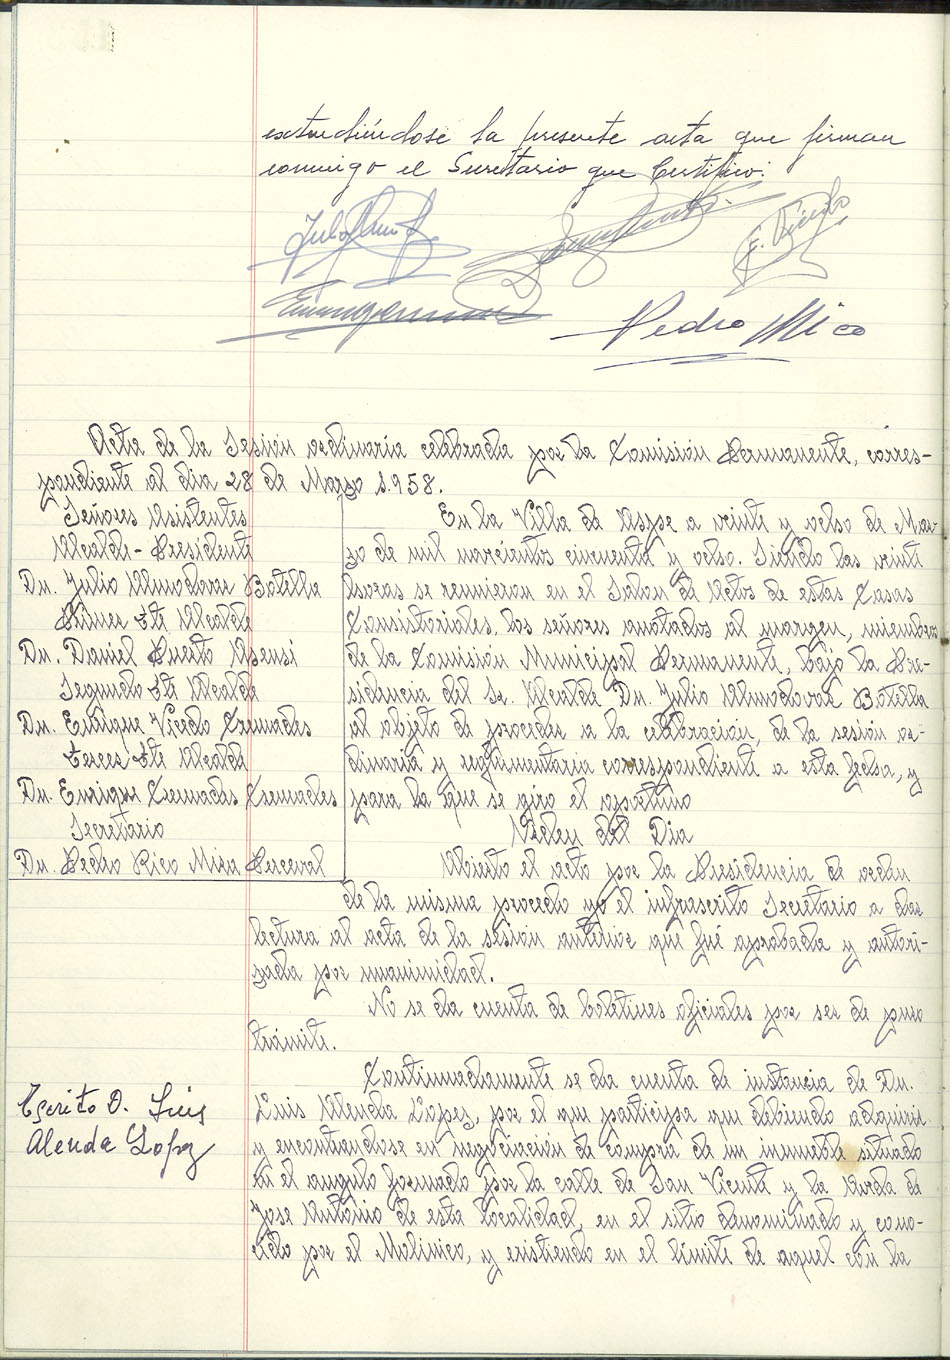 extendiéndose la presente acta que firman
conmigo el Secretario que Certifico:
Pedro Mico
Acta de la Sesión ordinaria celebrada por la Comisión Permanente, corres-
pondiente al dia 28 de Marzo 1.958.
Señores Asistentes
Alcalde-Presidente
Dn. Julio Almodovar Botella
Primer Tte Alcalde
Dn. Daniel Puerto Asensi
Segundo Tte Alcalde
Dn. Enrique Vicedo Cremades
Tercer Tte Alcalde
Dn. Enrique Cremades Cremades
Secretario
Dn. Pedro Rico Mira Perceval
En la Villa de Aspe a veinte y ocho de Mar-
zo de mil novecientos cincuenta y ocho. Siendo las veinte
horas se reunieron en el Salon de Actos de estas Casas
Consistoriales, los señores anotados al margen, miembros
de la Comisión Municipal Permanente, bajo la Pre-
sidencia del Sr. Alcalde Dn. Julio Almodovar Botella
al objeto de proceder a la celebracion, de la sesión or-
dinaria y reglamentaria correspondiente a esta fecha, y
para la que se giro el oportuno
Orden del Dia
Abierto el acto por la Presidencia de orden
de la misma procedo yo el infrascrito Secretario a dar
lectura al acta de la sesión anterior que fué aprobada y autori-
zada por unanimidad.
No se da cuenta de boletines oficiales por ser de puro
trámite.
Escrito D. Luis
Alenda Lopez
Continuadamente se da cuenta de instancia de Dn.
Luis Alenda López, por el que participa que debiendo adquirir
y encontrandose en negociación de compra de un inmueble situado
en el angulo formado por la calle de San Vicente y la Avrda de
Jose Antonio de esta localidad, en el sitio denominado y cono-
cido por el Molinico, y existiendo en el límite de aquel con la